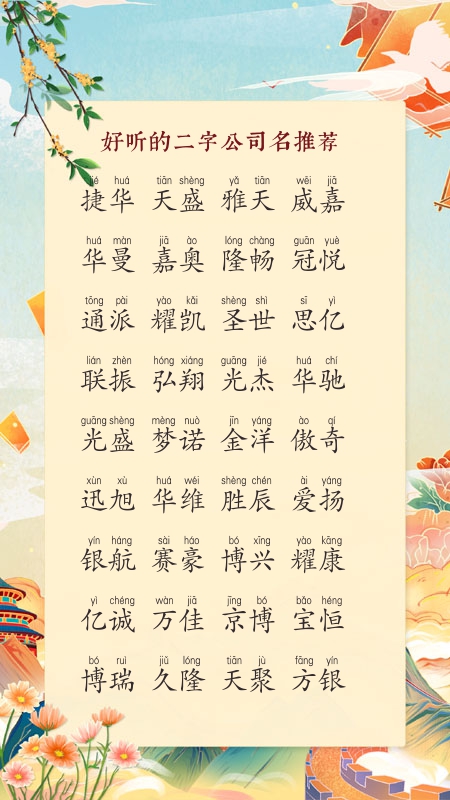 好听的二字公司名推荐
jié huá tiān shèng yǎ tiān wēi jiā
捷华 天盛 雅天 威嘉
huá màn jiā ào lóng chàng guān yuè
华曼 嘉奥 隆畅 冠悦
tōng pài yào kǎi shèng shì sī yì
通派 耀凯 圣世 思亿
lián zhèn hóng xiáng guāng jié huá chí
联振 弘翔 光杰 华驰
guāng shèng mèng nuò jīn yáng ào qí
光盛 梦诺 金洋 傲奇
xùn xù huá wéi shèng chén ài yáng
迅旭 华维 胜辰 爱扬
yín háng sài háo bó xīng yào kāng
银航 赛豪 博兴 耀康
yì chéng wàn jiā jīng bó bǎo héng
亿诚 万佳 京博 宝恒
bó ruì jiǔ lóng tiān jù fāng yín
博瑞 久隆 天聚 方银